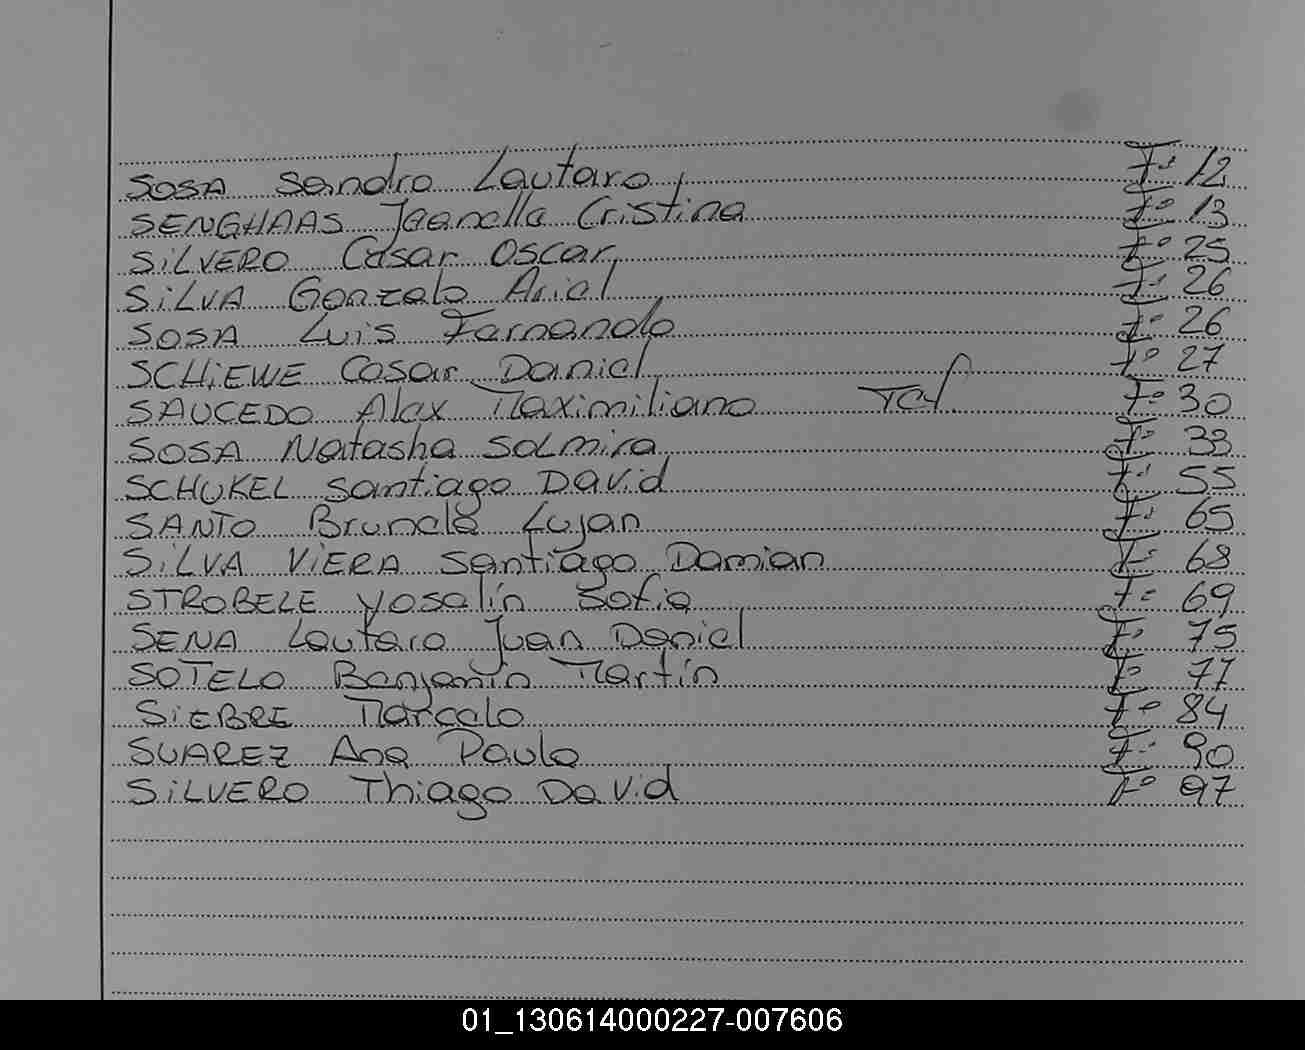 SOSA Sandro Lautaro F° 12
SENGHAAS Jeanella Cristina F° 13
SiLVERO Cesar Oscar F° 25
SiLVA Gonzalo Ariel F° 26
SOSA Luis Fernando F° 26
SCHiEWE Cesar Daniel F° 27
SAUCEDO Alex Maximiliano F° 30
SOSA Natasha Solmira F° 33
SCHUKEL Santiago David F° 55
SANTO Brunela Lujan F° 65
SiLVA ViERA Santiago Damian F° 68
STROBELE Yosalin Sofia F° 69
SENA Lautaro Juan Daniel F° 75
SOTELO Benjamin Martin F° 77
SiEBRE Marcelo F° 84
SUAREZ Ana Paula F° 90
SiLVERO Thiago David F° 97
01_130614000227-007606